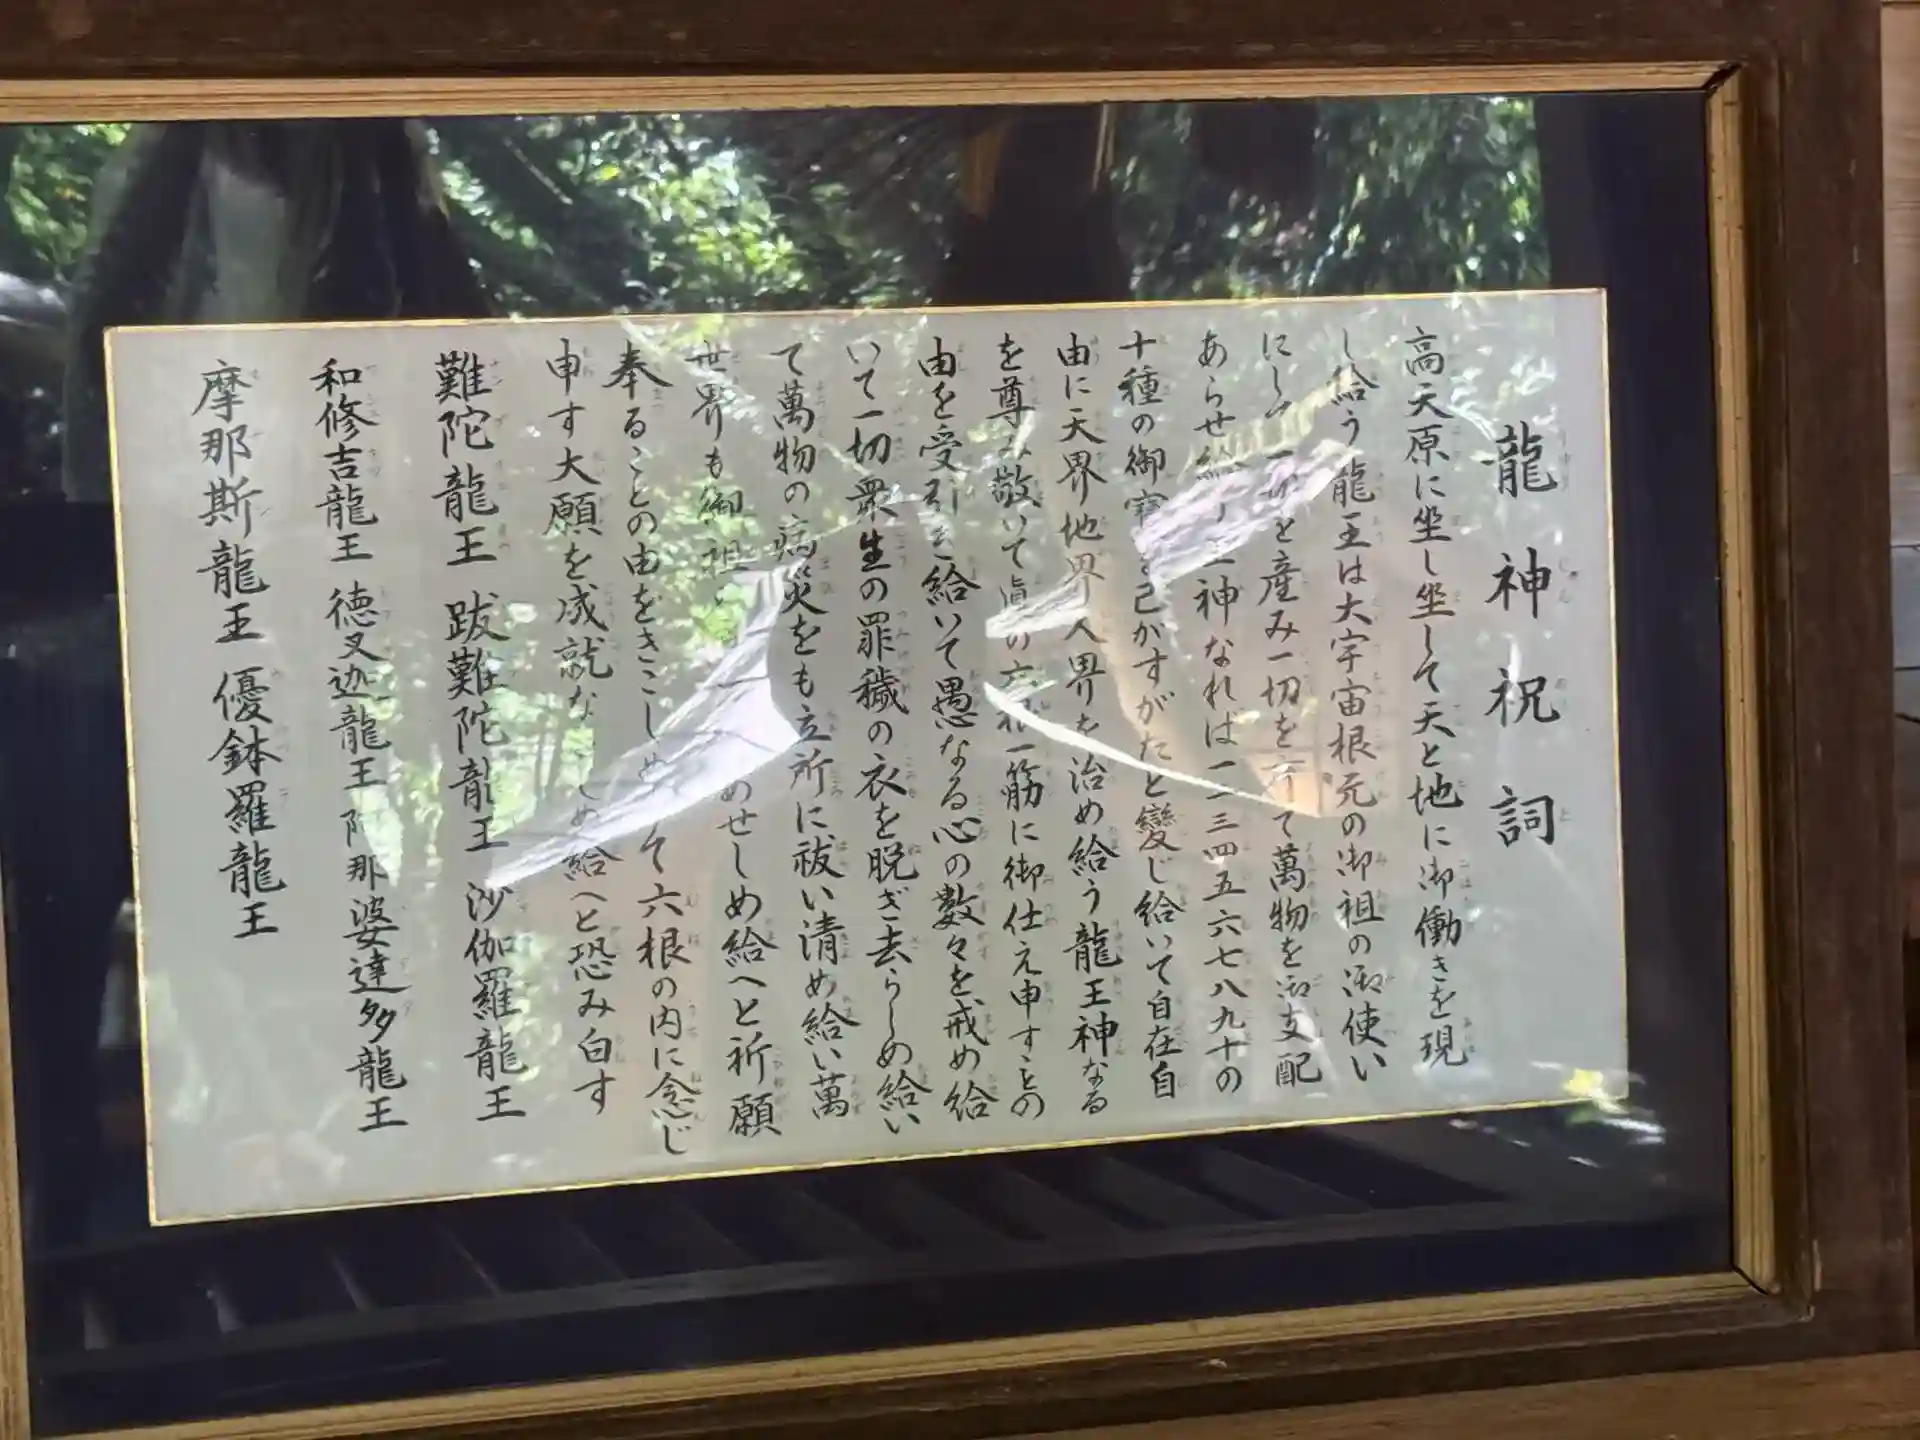 龍神祝詞
高天原に坐し坐して天と地に御働きを現
し給う龍王は大宇宙根元の御祖の御使い
にして一切を産み一切を育て萬物を御支配
あらせ給う王神なれば一二三四五六七八九十の
十種の御寶を己がすがたと變じ給いて自在自
由に天界地界人界を治め給う龍王神なる
を尊み敬いて眞の六根一筋に御仕え申すことの
由を受引き給いて愚なる心の数々を戒め給
いて一切衆生の罪穢の衣を脱ぎ去らしめ給い
て萬物の病災をも立所に祓い清め給い萬
世界も御祖 めせしめ給へと祈願
奉ることの由をきこしめ て六根の内に念じ
申す大願を成就な しめ給へと恐み白す
難陀龍王 跋難陀龍王 沙伽羅龍王
和修吉龍王 徳叉迦龍王 阿那婆達多龍王
摩那斯龍王 優鉢羅龍王